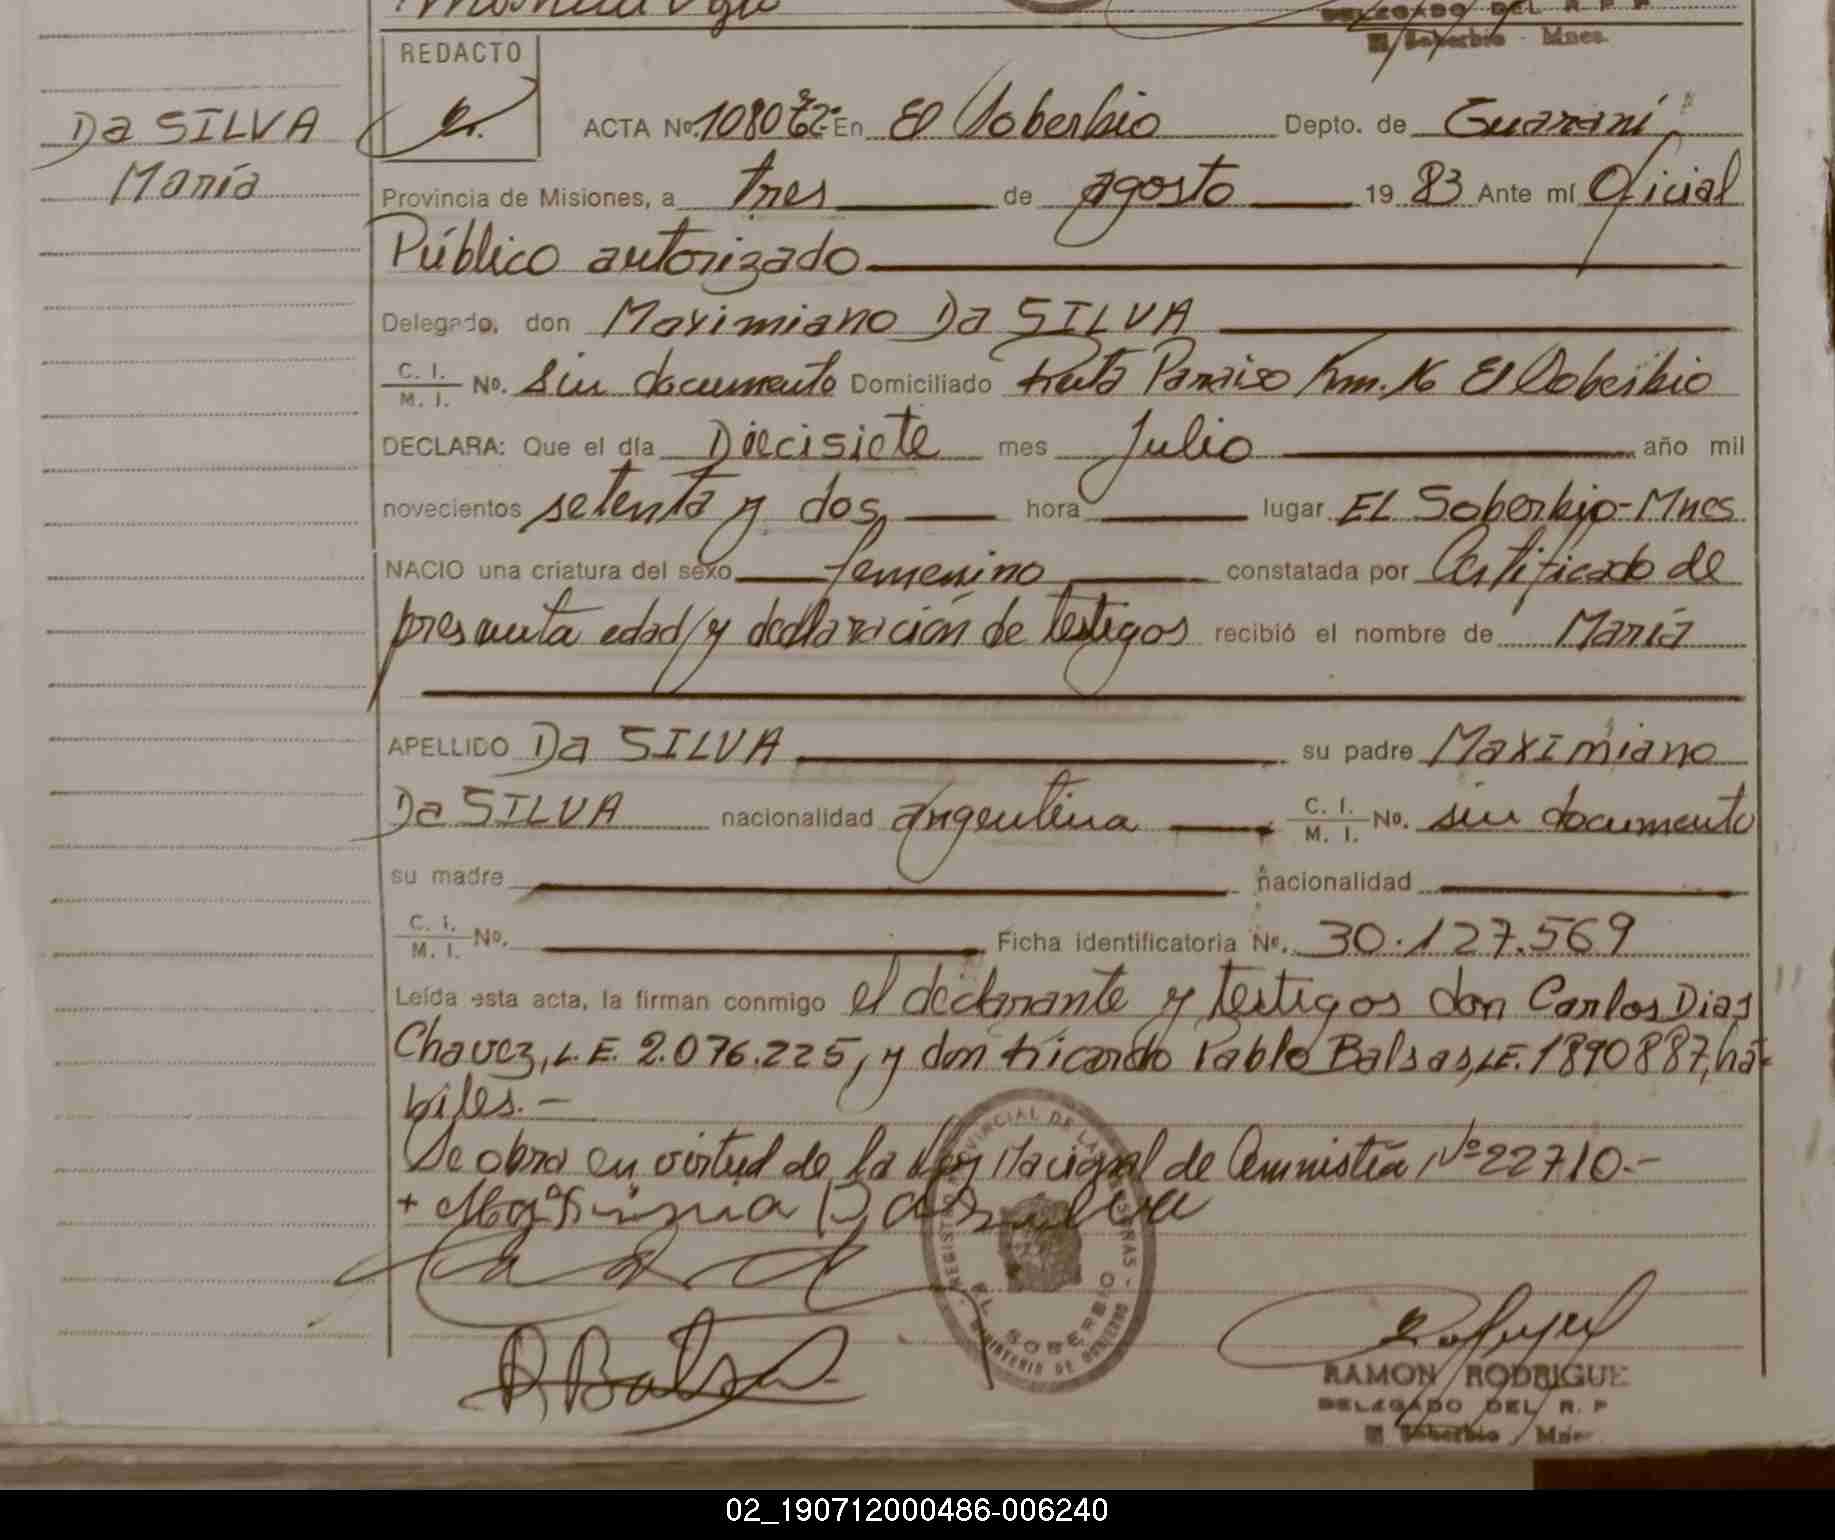 DELEGADO DEL R P P
El Soberbio - Mnes.
REDACTO
Da SILVA
María
ACTA No. En El Soberbio Depto. de Guaraní
Provincia de Misiones, a tres de agosto 19 83 Ante mí Oficial
Público autorizado
Delegado, don Maximiano Da SILVA
C. I. / M. I. No. sin documento Domiciliado Ruta Paraiso Km. 16 El Soberbio
DECLARA: Que el día Diecisiete mes Julio año mil
novecientos setenta y dos, hora lugar EL Soberbio-Mnes
NACIO una criatura del sexo femenino constatada por Certificado de
presunta edad/y declaración de testigos recibió el nombre de María
APELLIDO Da SILVA su padre Maximiano
Da SILVA nacionalidad argentina C. I. / M. I. No. sin documento
su madre nacionalidad
C. I. / M. I. No. Ficha identificatoria No. 30.127.569
Leída esta acta, la firman conmigo el declarante y testigos don Carlos Dias
Chavez, L.E. 2.076.225, y don Ricardo Pablo Balsas, LE. 1890887, há-
biles.-
Se obra en virtud de la Ley Nacional de Amnistía Nº 22710.-
Da silva
R Balsa
REGISTRO PROVINCIAL DE LAS PERSONAS - EL SOBERBIO - MINISTERIO DE GOBIERNO
RAMON RODRIGUE
DELEGADO DEL R. P
El Soberbio Mnes
02_190712000486-006240